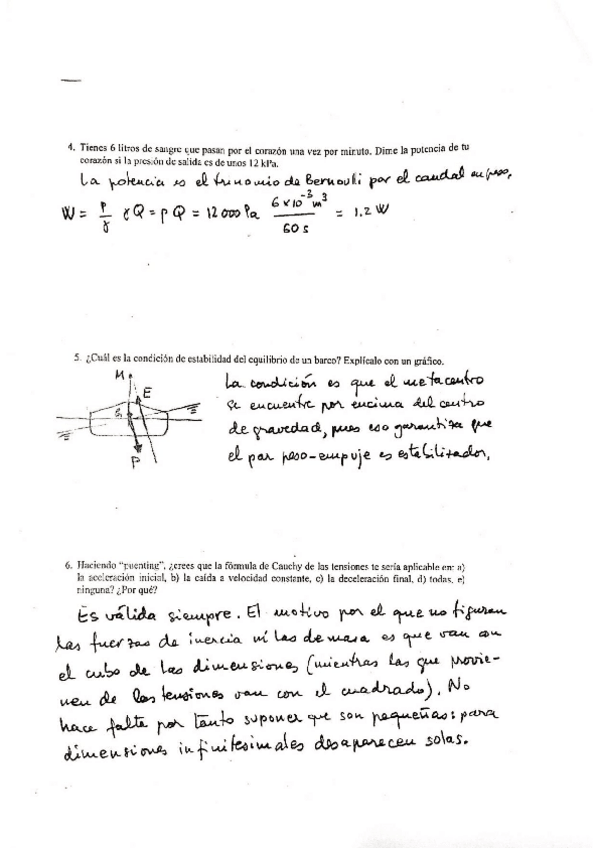 4. Tienes 6 litros de sangre que pasan por el corazón una vez por minuto. Dime la potencia de tu
corazón si la presión de salida es de unos 12 kPa.
La potencia es el trinomio de Bernouli por el caudal en peso.
W = p/γ γQ = pQ = 12000 Pa 6x10⁻³ m³ / 60 s = 1.2 W
5. ¿Cuál es la condición de estabilidad del equilibrio de un barco? Explícalo con un gráfico.
M
E
G
P
La condición es que el metacentro
se encuentre por encima del centro
de gravedad, pues eso garantiza que
el par peso-empuje es estabilizador.
6. Haciendo "puenting", ¿crees que la fórmula de Cauchy de las tensiones te sería aplicable en: a)
la aceleración inicial, b) la caída a velocidad constante, c) la deceleración final, d) todas, e)
ninguna? ¿Por qué?
Es válida siempre. El motivo por el que no figuran
las fuerzas de inercia ni las de masa es que van con
el cubo de las dimensiones (mientras las que provie-
nen de las tensiones van con el cuadrado). No
hace falta por tanto suponer que son pequeñas: para
dimensiones infinitesimales desaparecen solas.